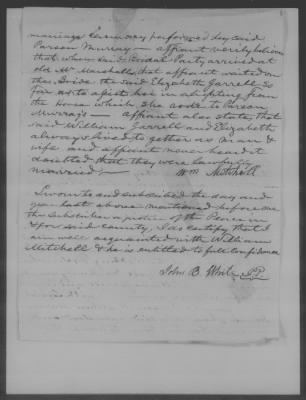 marriage Ceremony performed by said
Parson Murray – affiant verily believes
that when said Bridal Party arrived at
old Mr Marshalls, that affiant waited on
the Bride the said Elizabeth Garrell so
far as to assist her in alighting from
the horse which she rode to Parson
Murray's – affiant also states, that
said William Garrell and Elizabeth
always lived together as man &
wife and affiant never heard it
doubted that they were lawfully
married. Wm Mitchell
Sworn to and subscribed the day and
year last above mentioned before me
the Subscriber a justice of the Peace in
& for said County, I do certify that I
am well acquainted with William
Mitchell & he is entitled to full confidence
John B. White JP